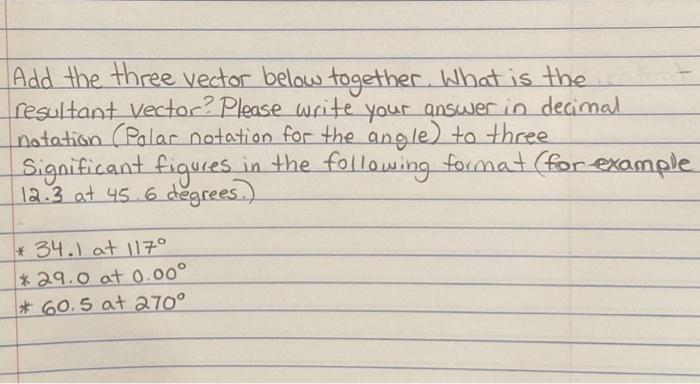 Add the three vector below together. What is the
resultant vector? Please write your answer in decimal
notation (Polar notation for the angle) to three
Significant figures in the following format (for example
12.3 at 45.6 degrees.)
* 34.1 at 117°
* 29.0 at 0.00°
* 60.5 at 270°